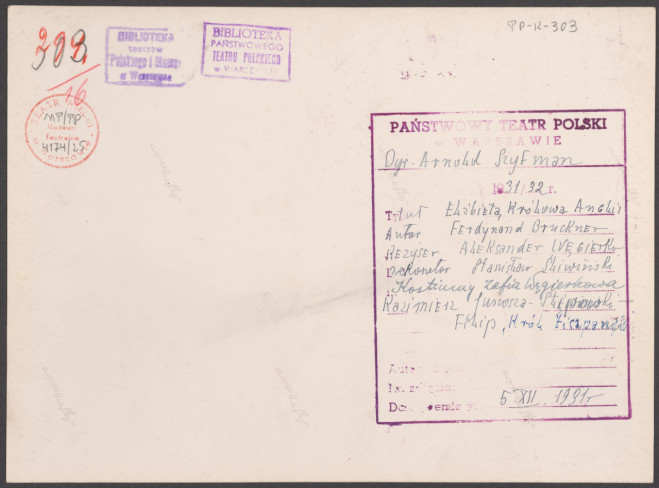 PP-K-303
303
16
BIBLIOTEKA
teatrów
Polskiego i
w Warszawie
BIBLIOTEKA
PAŃSTWOWEGO
TEATRU POLSKIEGO
w WARSZAWIE
TEATR POLSKI
MT/TP
Muzeum
Teatralne
4174/25
PAŃSTWOWY TEATR POLSKI
w WARSZAWIE
Dyr. Arnold Szyfman
1931/32 r.
Tytuł Elżbieta, Królowa Anglii
Autor Ferdynand Bruckner
Reżyser Aleksander Węgierko
Dekorator Stanisław Śliwiński
Kostiumy Zofia Węgierkowa
Kazimierz Junosza-Stępowski
Filip, Król Hiszpański
5 XII. 1931 r